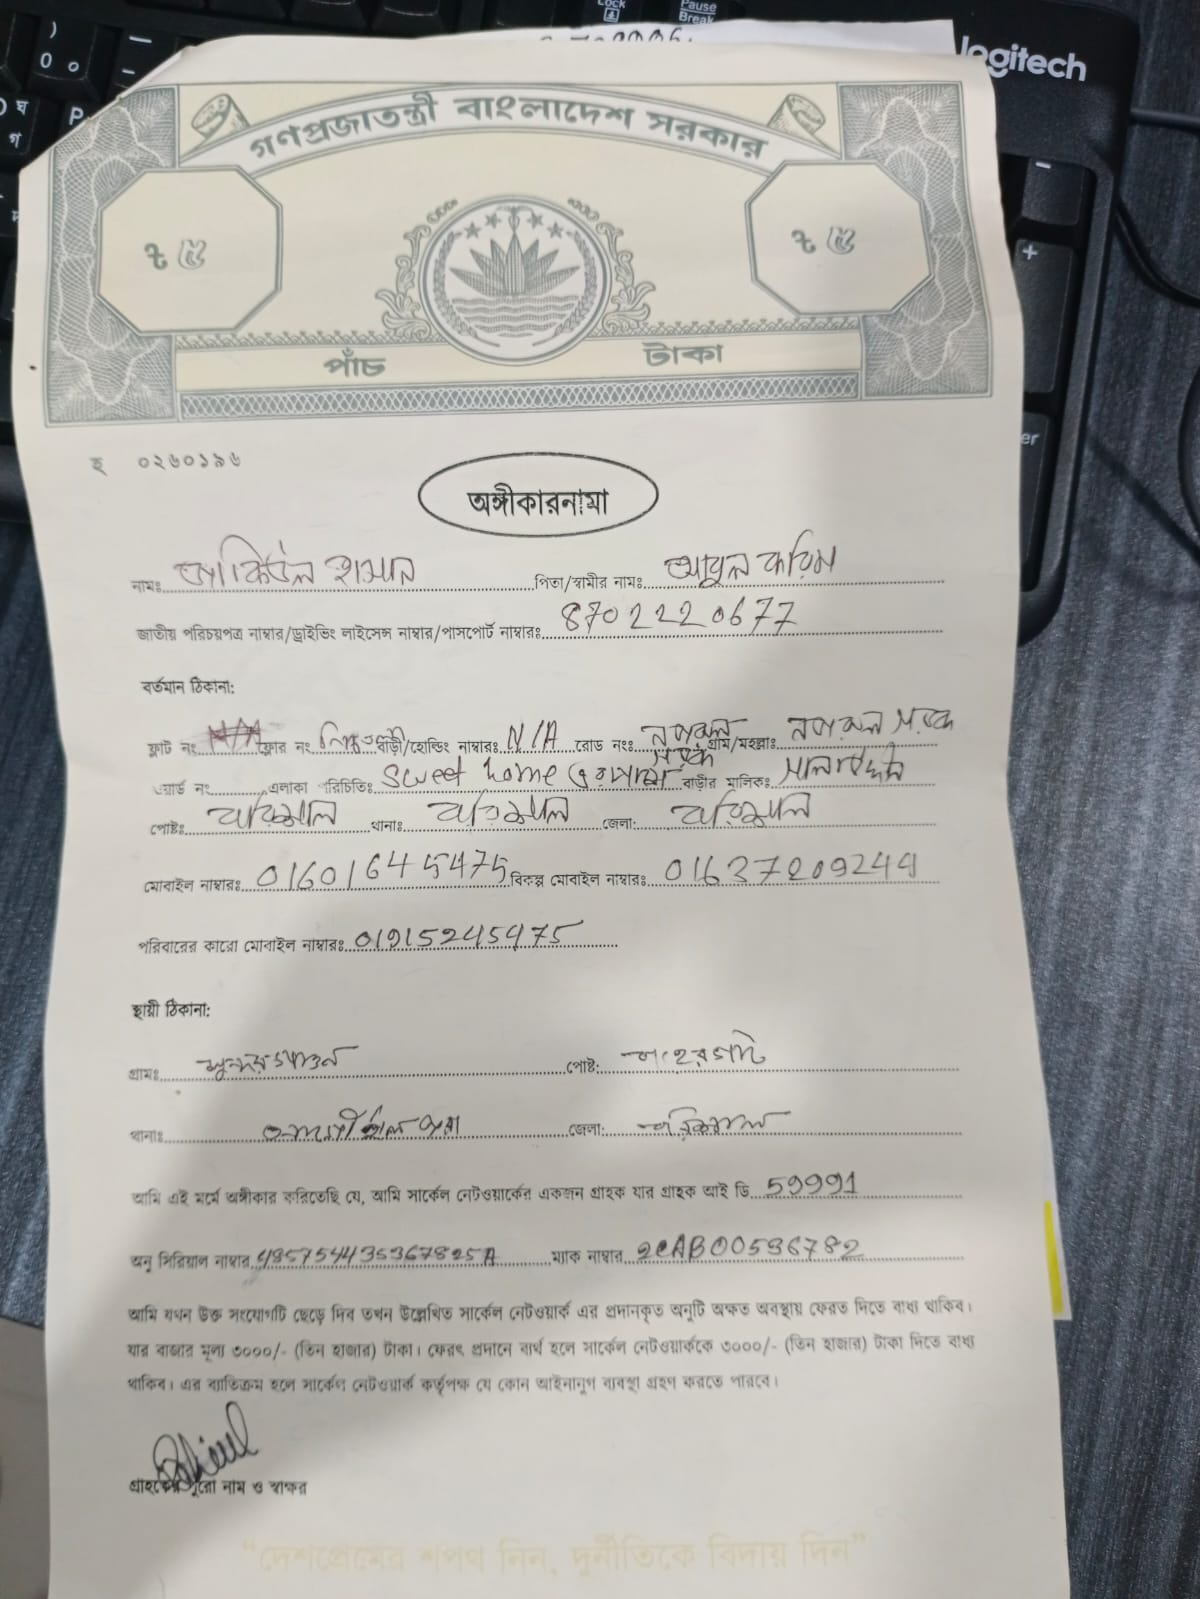 logitech
Pause
Break
গণপ্রজাতন্ত্রী বাংলাদেশ সরকার
৳ ৫ ৳ ৫
পাঁচ টাকা
হ ০২৬০১৯৬
অঙ্গীকারনামা
নামঃ হাসান পিতা/স্বামীর নামঃ আবুল করিম
জাতীয় পরিচয়পত্র নাম্বার/ড্রাইভিং লাইসেন্স নাম্বার/পাসপোর্ট নাম্বারঃ 8702220677
বর্তমান ঠিকানা:
ফ্লাট নং ফ্লোর নং বাড়ী/হোল্ডিং নাম্বারঃ N/A রোড নংঃ গ্রাম/মহল্লাঃ সড়ক
সড়ক
ওয়ার্ড নং এলাকা পরিচিতিঃ Sweet home বাড়ীর মালিকঃ
পোষ্টঃ বরিশাল থানাঃ বরিশাল জেলা: বরিশাল
মোবাইল নাম্বারঃ 01601645475 বিকল্প মোবাইল নাম্বারঃ 01637209249
পরিবারের কারো মোবাইল নাম্বারঃ 01915245475
স্থায়ী ঠিকানা:
গ্রামঃ পোষ্ট:
থানাঃ জেলা: বরিশাল
আমি এই মর্মে অঙ্গীকার করিতেছি যে, আমি সার্কেল নেটওয়ার্কের একজন গ্রাহক যার গ্রাহক আই ডি 59991
অনু সিরিয়াল নাম্বার 485754435367825A ম্যাক নাম্বার 2CAB00536782
আমি যখন উক্ত সংযোগটি ছেড়ে দিব তখন উল্লেখিত সার্কেল নেটওয়ার্ক এর প্রদানকৃত অনুটি অক্ষত অবস্থায় ফেরত দিতে বাধ্য থাকিব।
যার বাজার মূল্য ৩০০০/- (তিন হাজার) টাকা। ফেরৎ প্রদানে ব্যর্থ হলে সার্কেল নেটওয়ার্ককে ৩০০০/- (তিন হাজার) টাকা দিতে বাধ্য
থাকিব। এর ব্যতিক্রম হলে সার্কেল নেটওয়ার্ক কর্তৃপক্ষ যে কোন আইনানুগ ব্যবস্থা গ্রহণ করতে পারবে।
গ্রাহকের পুরো নাম ও স্বাক্ষর
“দেশপ্রেমের শপথ নিন, দুর্নীতিকে বিদায় দিন”